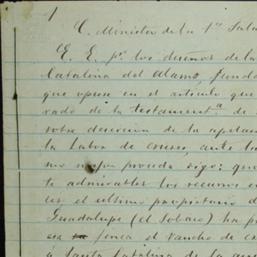 1
C. Ministro de la 1ª Sala
E. E. pr. los dueños de la
Catalina del Alamo, fund
que opuse en el artículo que
vado de la testamentª de
sobre deserción de la apelac
la Labor de enero, ante la
mo mejor proceda digo: que
te admirables los recursos en
es el último propietario d
Guadalupe (el Lobaco) ha p
sea finca el rancho de
á Santa Catalina de la